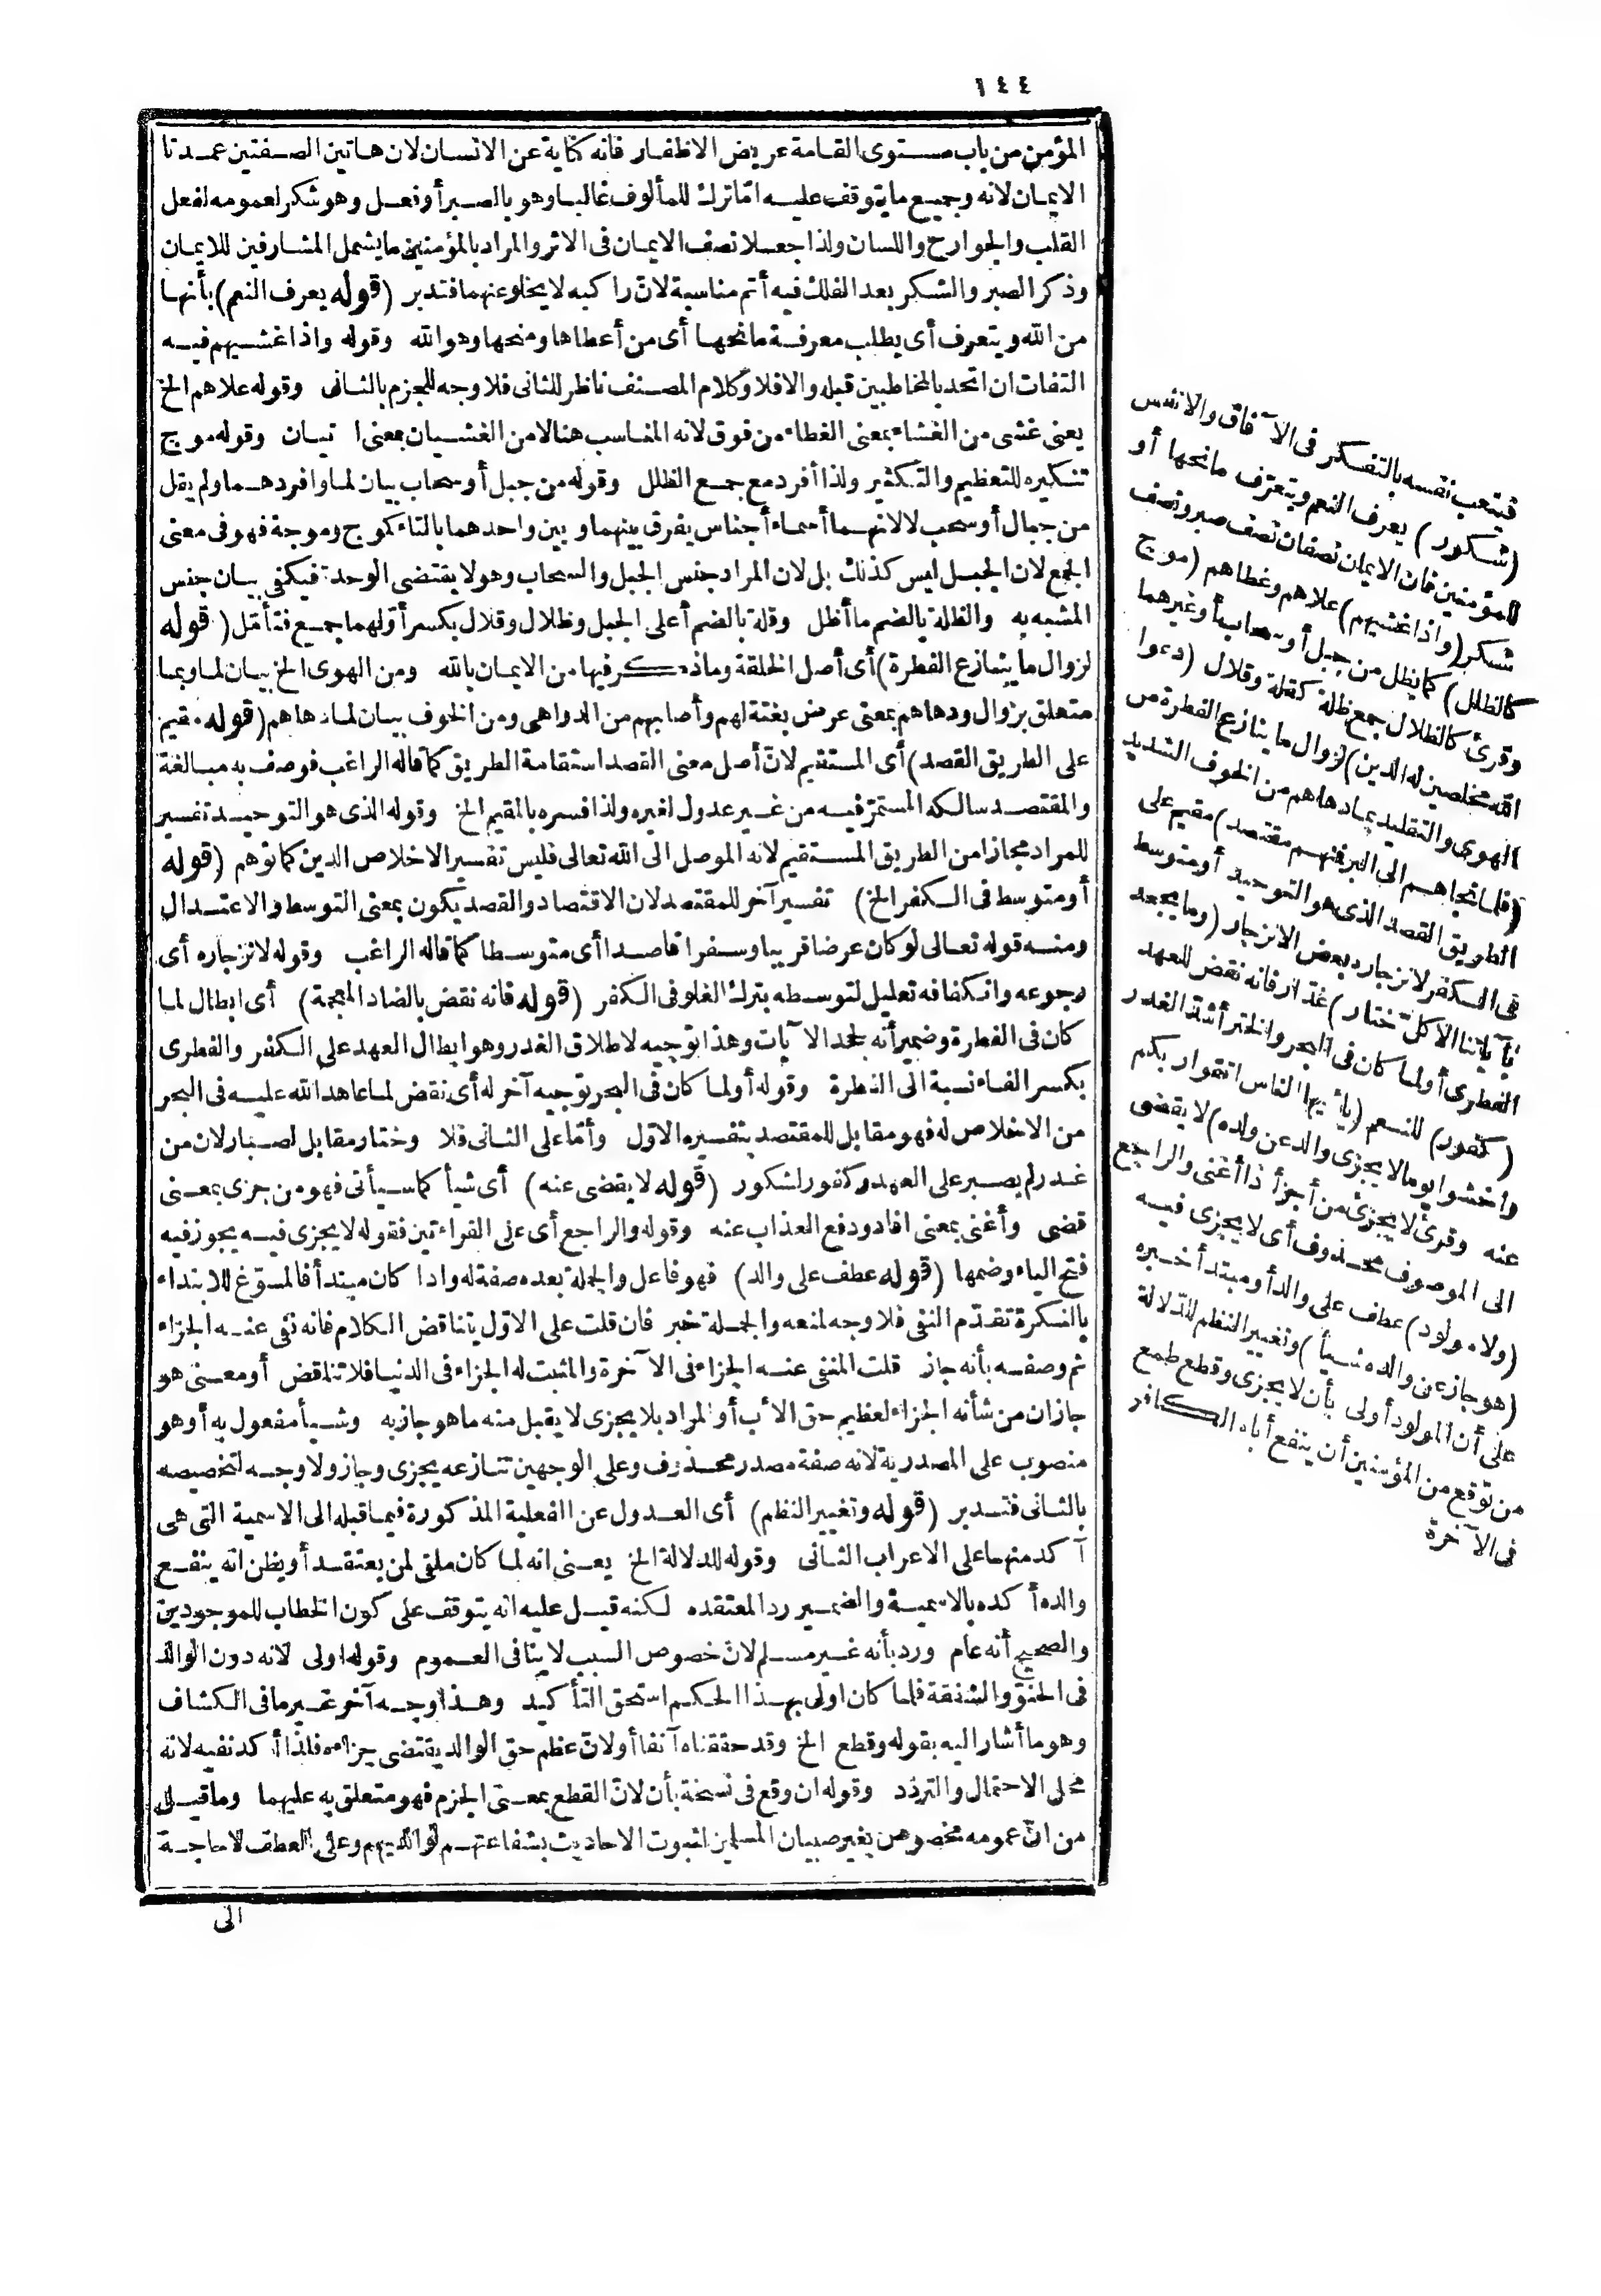 ١٤٤
المؤمن من باب مستوى القامة عريض الاظفار فانه كناية عن الانسان لان هاتين الصفتين عمدتا
الايمان لانه وجميع ما يتوقف عليه امّا ترك للمألوف غالبا وهو بالصبر أو فعل وهو شكر لعمومه لفعل
القلب والجوارح واللسان ولذا جعلا نصف الايمان فى الاثر والمراد بالمؤمنين ما يشمل المشارفين للايمان
وذكر الصبر والشكر بعد الفلك فيه أتم مناسبة لانّ راكبه لا يخلو عنهما فتدبر (قوله يعرف النعم) بأنها
من الله ويتعرف أى يطلب معرفة مانحها أى من أعطاها ومنحها وهو الله وقوله واذا غشيهم فيه
التفات ان اتحد بالمخاطبين قبله والا فلا وكلام المصنف ناظر للثانى فلا وجه للجزم بالثانى وقوله علاهم الخ
يعنى غشى من الغشاء بمعنى الغطاء من فوق لانه المناسب هنا لا من الغشيان بمعنى ا تيان وقوله موج
تنكيره للتعظيم والتكثير ولذا أفرد مع جمع الظلل وقوله من جبل أو سحاب بيان لما وافردهما ولم يقل
من جبال أو سحب لا لانهما أسماء أجناس يفرق بينهما وبين واحدهما بالتاء كموج وموجة فهو فى معنى
الجمع لان الجبل ليس كذلك بل لان المراد جنس الجبل والسحاب وهو لا يقتضى الوحدة فيكفى بيان جنس
المشبه به والظلة بالضم ما أظل وقلة بالضم أعلى الجبل وظلال وقلال بكسر أوّلهما جميع فتأمّل (قوله
لزوال ما ينازع الفطرة) أى أصل الخلقة وما ذكر فيها من الايمان بالله ومن الهوى الخ بيان لما وبما
متعلق بزوال ودهاهم بمعنى عرض بغتة لهم وأصابهم من الدواهى ومن الخوف بيان لما دهاهم (قوله مقيم
على الطريق القصد) أى المستقيم لانّ أصل معنى القصد استقامة الطريق كما قاله الراغب فوصف به مبالغة
والمقتصد سالكه المستمرّ فيه من غير عدول لغيره ولذا فسره بالمقيم الخ وقوله الذى هو التوحيد تفسير
للمراد مجازا من الطريق المستقيم لانه الموصل الى الله تعالى فليس تفسير الاخلاص الدين كما توهم (قوله
أو متوسط فى الكفر الخ) تفسير آخر للمقتصد لان الاقتصاد والقصد يكون بمعنى التوسط والاعتدال
ومنه قوله تعالى لو كان عرضا قريبا وسفرا قاصدا أى متوسطا كما قاله الراغب وقوله لانزجاره أى
رجوعه وانكفافه تعليل لتوسطه بترك الغلو فى الكفر (قوله فانه نقض بالضاد المعجمة) أى ابطال لما
كان فى الفطرة وضمير أنه لجحد الآيات وهذا توجيه لاطلاق الغدر وهو ابطال العهد على الكفر والفطرى
بكسر الفاء نسبة الى الفطرة وقوله أو لما كان فى البحر توجيه آخر له أى نقض لما عاهد الله عليه فى البحر
من الاخلاص له فهو مقابل للمقتصد بتفسيره الاول وأمّا على الثانى فلا وختار مقابل لصبار لان من
غدر لم يصبر على العهد وكفور لشكور (قوله لا يقضى عنه) أى شيأ كما سيأتى فهو من جزى بمعنى
قضى وأغنى بمعنى افاد ودفع العذاب عنه وقوله والراجع أى على القراءتين فقوله لا يجزى فيه يجوز فيه
فتح الياء وضمها (قوله عطف على والد) فهو فاعل والجملة بعده صفة له واذا كان مبتدأ فالمسوّغ للابتداء
بالنكرة تقدّم النفى فلا وجه لمنعه والجملة خبر فان قلت على الاوّل يتناقض الكلام فانه نفى عنه الجزاء
ثم وصفه بأنه جاز قلت المنفى عنه الجزاء فى الآخرة والمثبت له الجزاء فى الدنيا فلا تناقض أو معنى هو
جاز ان من شأنه الجزاء لعظيم حق الأب أو المراد بلا يجزى لا يقبل منه ما هو جاز به وشيأ مفعول به أو هو
منصوب على المصدرية لانه صفة مصدر محذوف وعلى الوجهين تنازعه يجزى وجاز ولا وجه لتخصيصه
بالثانى فتدبر (قوله وتغيير النظم) أى العدول عن الفعلية المذكورة فيما قبله الى الاسمية التى هى
آكد منهما على الاعراب الثانى وقوله للدلالة الخ يعنى انه لما كان ملقى لمن يعتقد أو يظن انه ينفع
والده أكده بالاسمية والضمير ردا لمعتقده لكنه قيل عليه انه يتوقف على كون الخطاب للموجودين
والصحيح أنه عام وردّ بأنه غير مسلم لانّ خصوص السبب لا ينافى العموم وقوله اولى لانه دون الوالد
فى الحنوّ والشفقة فلما كان اولى بهذا الحكم استحق التأكيد وهذا وجه آخر غير ما فى الكشاف
وهو ما أشار اليه بقوله وقطع الخ وقد حققناه آنفا أو لانّ عظم حق الوالد يقتضى جزاءه فلذا أكد نفيه لانه
محل الاحتمال والتردّد وقوله ان وقع فى نسخة بأن لانّ القطع بمعنى الجزم فهو متعلق به عليهما وما قيل
من انّ عمومه مخصوص بغير صبيان المسلمين لثبوت الاحاديث بشفاعتهم لوالديهم وعلى العطف لا حاجة
الى
فيتعب نفسه بالتفكر فى الآفاق والانفس
(شكور) يعرف النعم ويتعرّف مانحها أو
للمؤمنين فان الايمان نصفان نصف صبر ونصف
شكر (واذا غشيهم) علاهم وغطاهم (موج
كالظلل) كما يظل من جبل أو سحاب أو غيرهما
وقرئ كالظلال جمع ظلة كقلة وقلال (دعوا
الله مخلصين له الدين) لزوال ما ينازع الفطرة من
الهوى والتقليد بما دهاهم من الخوف الشديد
(فلما نجاهم الى البر فنهم مقتصد) مقيم على
الطريق القصد الذى هو التوحيد أو متوسط
فى الكفر لانزجاره بعض الانزجار (وما يجحد
بآياتنا الا كلّ ختار) غدّار فانه نقض للعهد
الفطرى أو لما كان فى البحر والختر أشدّ الغدر
(كفور) للنعم (يا أيها الناس اتقوا ربكم
واخشوا يوما لا يجزى والد عن ولده) لا يقضى
عنه وقرئ لا يجزئ من أجزأ اذا أغنى والراجع
الى الموصوف محذوف أى لا يجزى فيه
(ولا مولود) عطف على والد أو مبتدأ خبره
(هو جاز عن والده شيأ) وتغيير النظم للدّلالة
على أن المولود أولى بأن لا يجزى وقطع طمع
من توقع من المؤمنين أن ينفع أباه الكافر
فى الآخرة